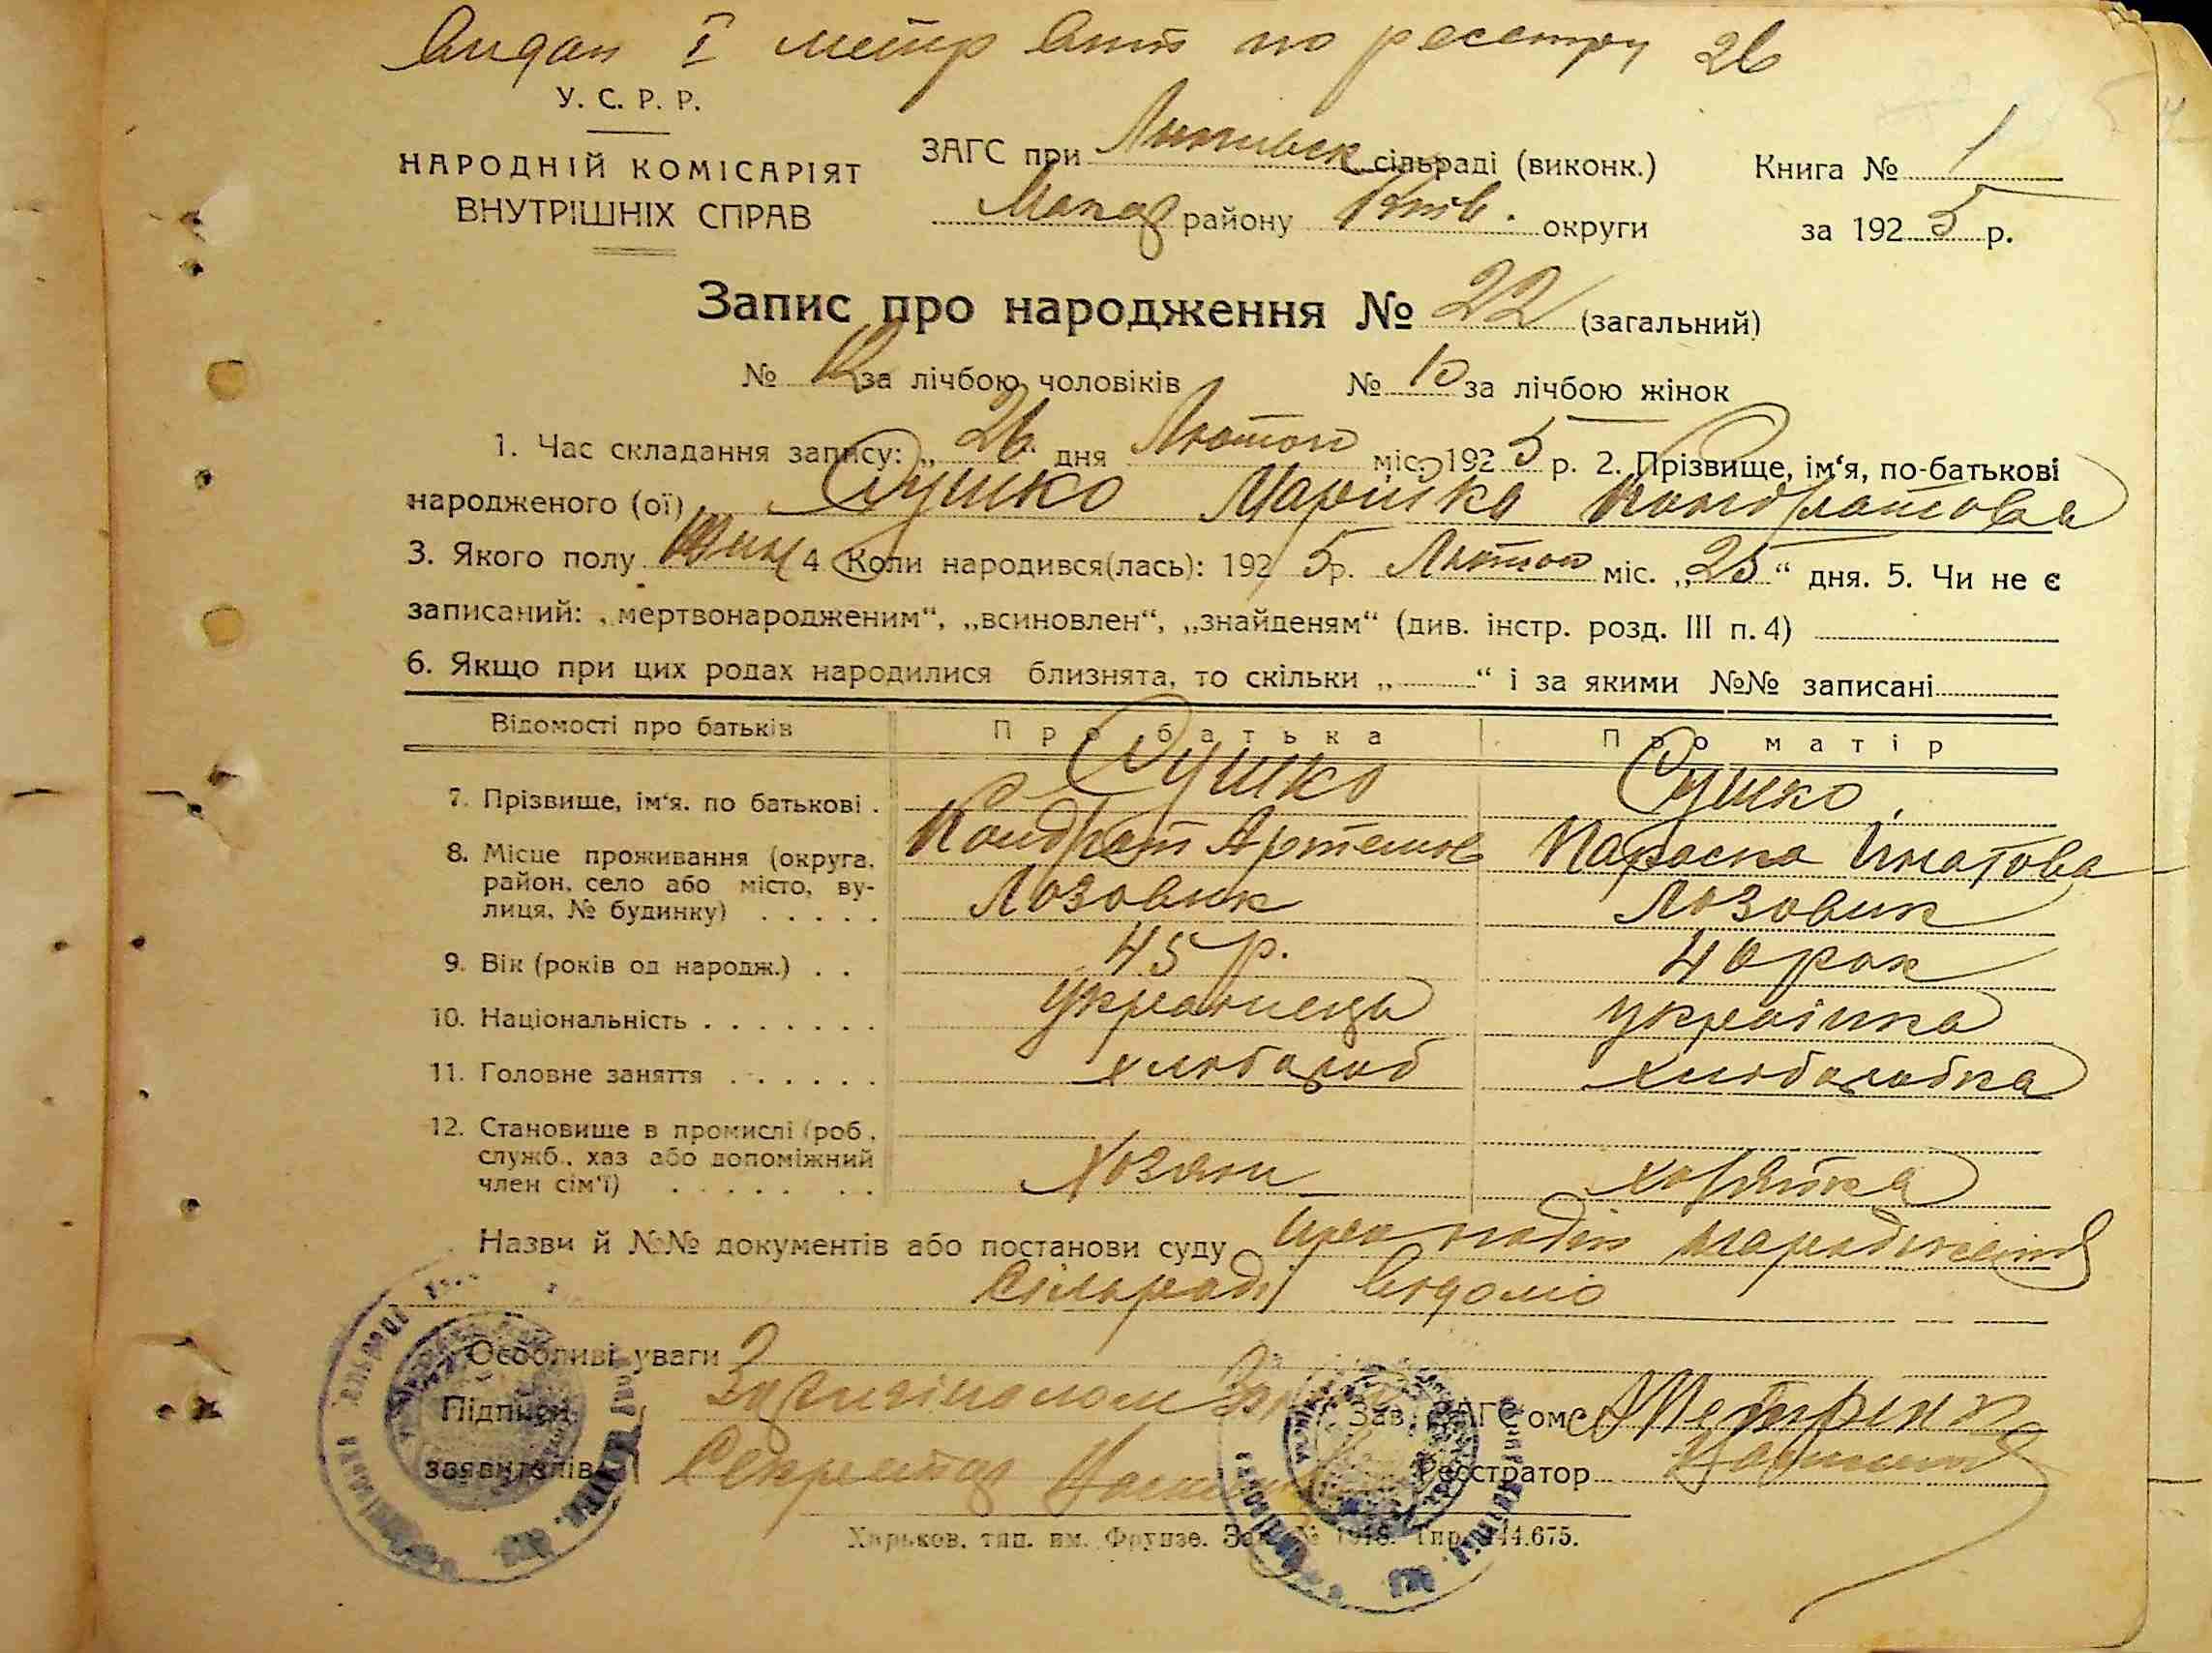 Видан I метр Вип по реестру 26
У. С. Р. Р.
НАРОДНІЙ КОМІСАРІЯТ
ВНУТРІШНІХ СПРАВ
ЗАГС при сільраді (виконк.)
Макар району Київ. округи
Книга № 1
за 1925 р.
Запис про народження № 22 (загальний)
№ 12 за лічбою чоловіків № 10 за лічбою жінок
1. Час складання запису: „26" дня Лютого міс. 1925 р. 2. Прізвище, ім'я, по-батькові
народженого (ої) Сушко Марийка Кондратова
3. Якого полу Жин 4 Коли народився(лась): 1925р. Лютого міс. „25" дня. 5. Чи не є
записаний: „мертвонародженим", „всиновлен", „знайденям" (див. інстр. розд. III п. 4)
6. Якщо при цих родах народилися близнята, то скільки „—" і за якими №№ записані
Відомості про батьків Про батька Про матір
7. Прізвище, ім'я. по батькові . Сушко Сушко
Кондрат Артемов Параска Игнатова
8. Місце проживання (округа, район, село або місто, ву-
лиця, № будинку) . . . . . Лозовик Лозовик
9. Вік (років од народж.) . . 45 р. 40 рок
10. Національність . . . . . . . украинець українка
11. Головне заняття . . . . . . хлібороб хліборобка
12. Становище в промислі (роб.,
служб., хаз або допоміжний
член сім'ї) . . . . . . . Хозяин хозяйка
Назви й №№ документів або постанови суду про подію народження
сільраді відомо
Особливі уваги
Підписи
заявителів Секретар
Зав. ЗАГС'ом
Реєстратор
Харьков, тип. им. Фрунзе. Зак. № 1918. Тир. 144.675.